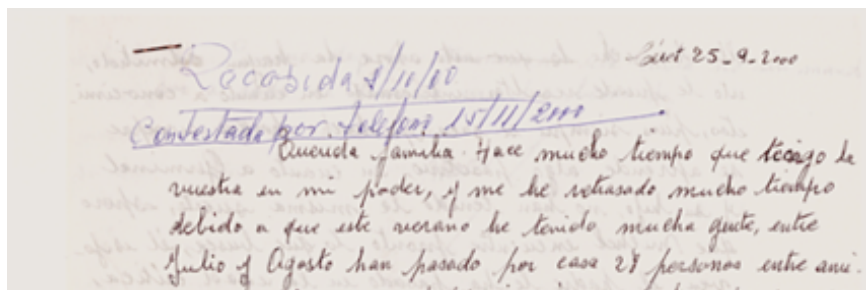 25-9-2000
Recibida 8/11/00
Contestada por teléfono 15/11/2000
Querida familia. Hace mucho tiempo que tengo la
vuestra en mi poder, y me he retrasado mucho tiempo
debido a que este verano he tenido mucha gente, entre
Julio y Agosto han pasado por casa 28 personas entre ami-